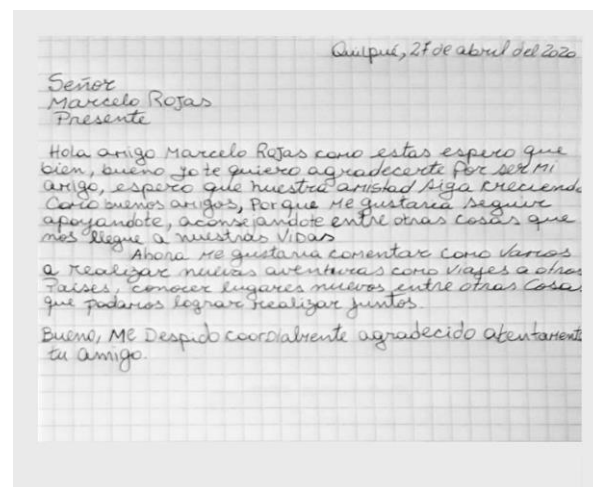 Quilpué, 27 de abril del 2020
Señor
Marcelo Rojas
Presente
Hola amigo Marcelo Rojas como estas espero que
bien, bueno yo te quiero agradecerte por ser mi
amigo, espero que nuestra amistad siga creciendo
como buenos amigos, Porque me gustaria seguir
apoyandote, aconsejandote entre otras cosas que
nos llegue a nuestras Vidas
Ahora me gustaria comentar como vamos
a realizar nuevas aventuras como viajes a otros
Paises, conocer lugares nuevos entre otras cosas
que podamos lograr realizar juntos.
Bueno, Me Despido coordialmente agradecido atentamente
tu amigo.